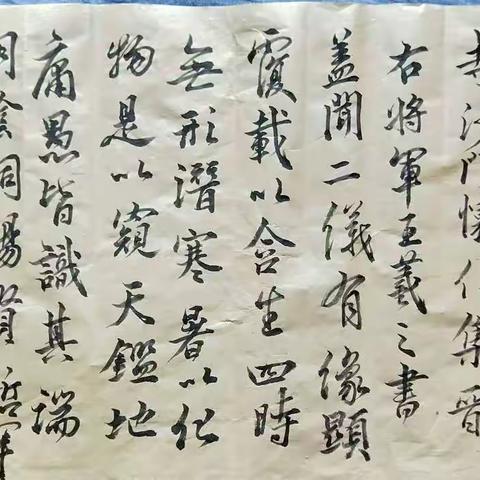 沙門懷仁集晉
右將軍王羲之書
蓋聞二儀有像顯
覆載以含生四時
無形潛寒暑以化
物是以窺天鑑地
庸愚皆識其端
明陰洞陽賢哲罕